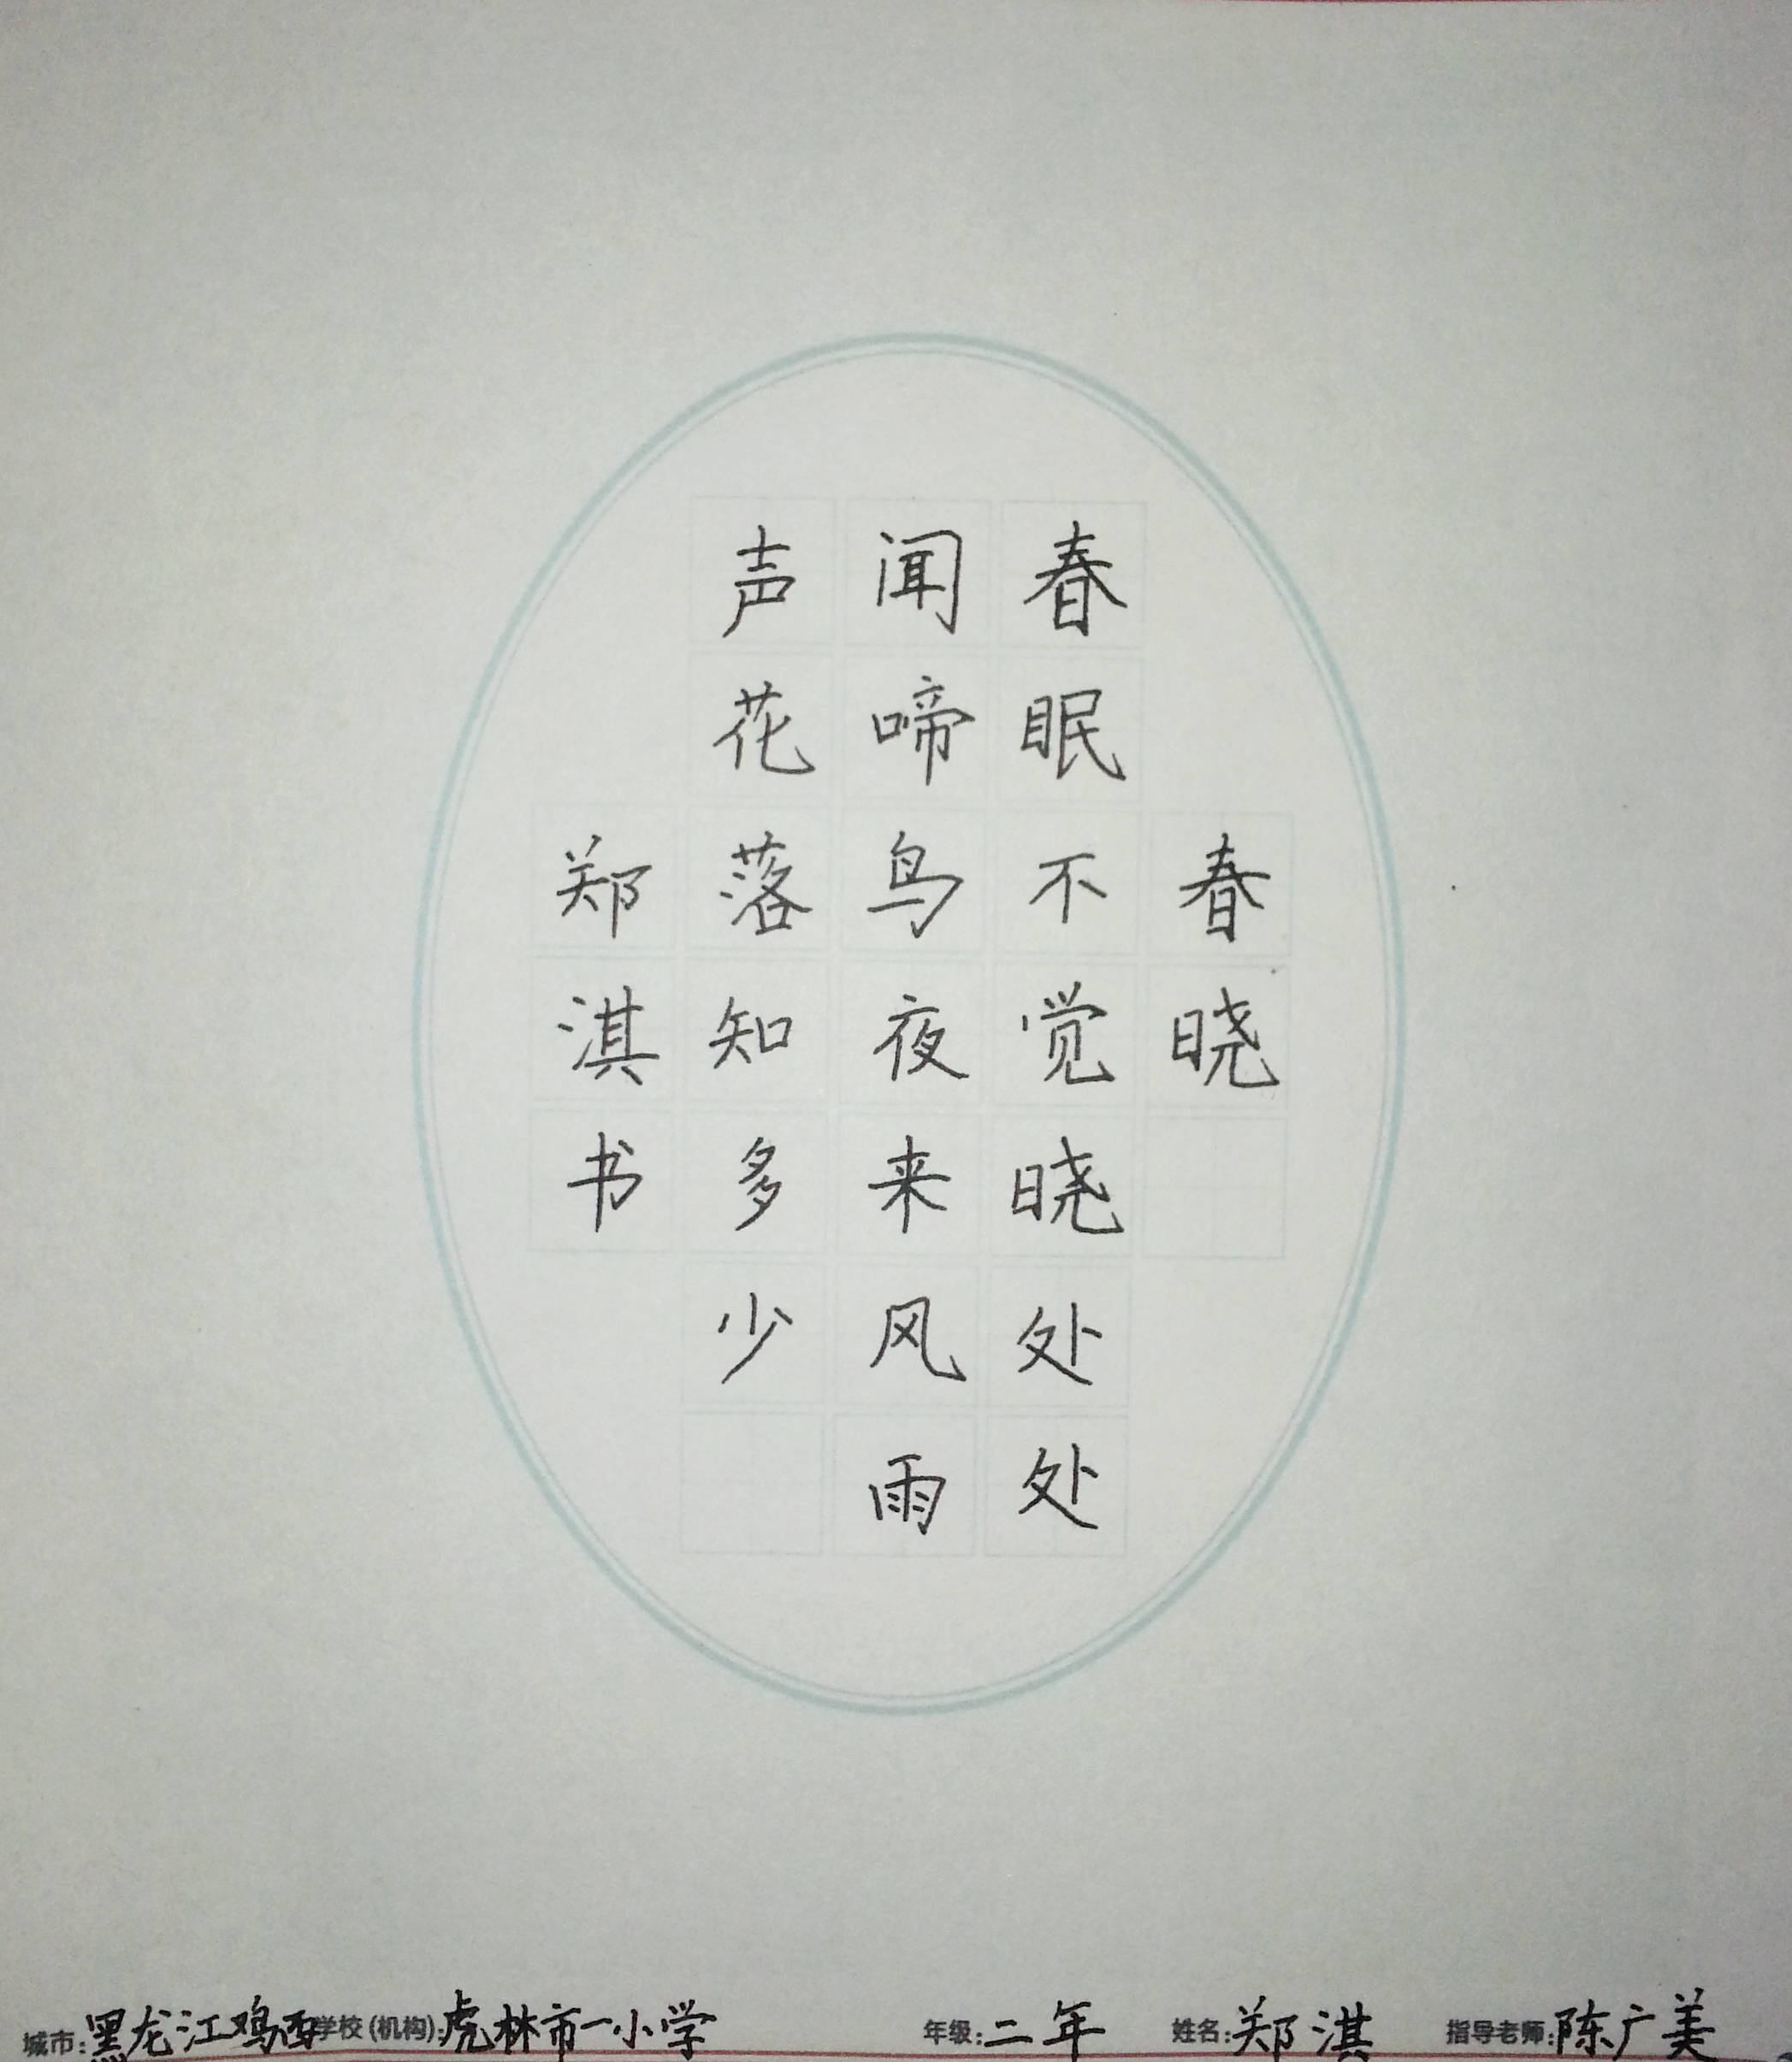 春晓
春眠不觉晓处处
闻啼鸟夜来风雨
声花落知多少
郑淇书
城市:黑龙江鸡西 学校(机构):虎林市一小学 年级:二年 姓名:郑淇 指导老师:陈广美